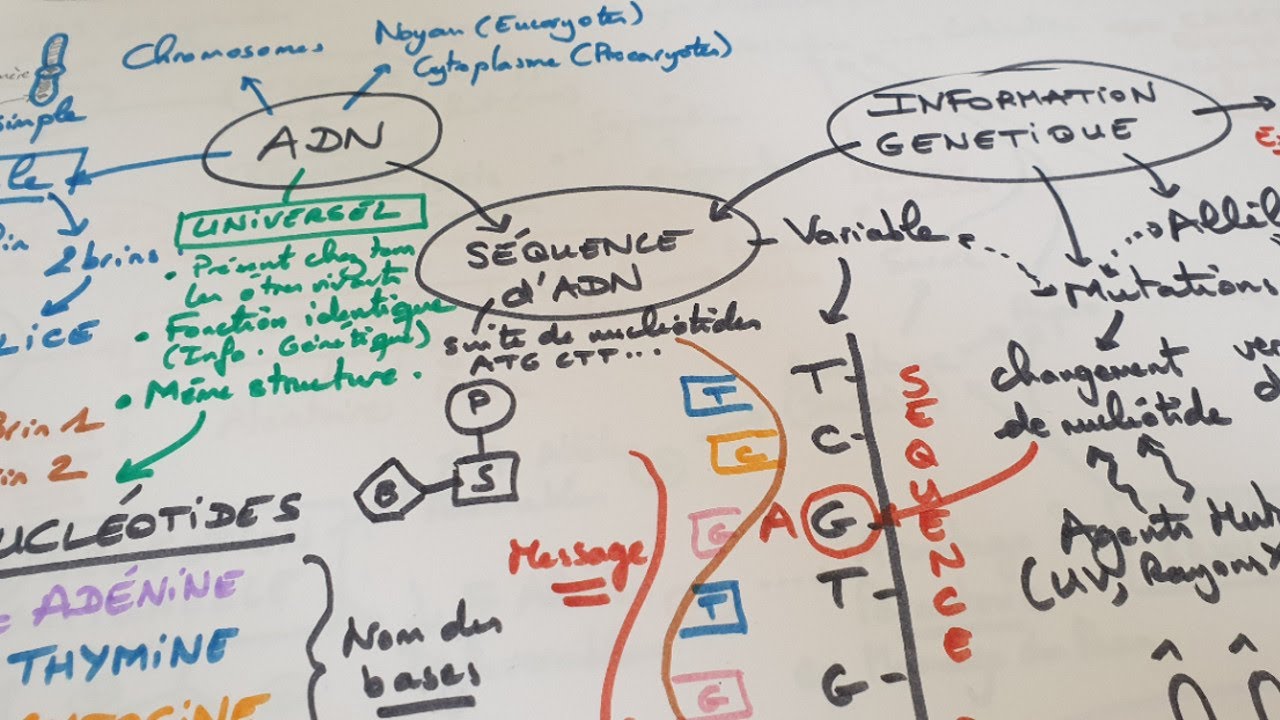 Chromosomes
Noyau (Eucaryotes)
Cytoplasme (Procaryotes)
simple
ADN
INFORMATION
GENETIQUE
UNIVERSEL
• Présent chez tous
les êtres vivants
• Fonction identique
(Info. Génétique)
• Même structure.
2 brins
LICE
Brin 1
in 2
SÉQUENCE
d'ADN
suite de nucléotides
ATG CTT...
Variable
Mutations
changement
de nucléotide
Agents Mut
(UV, Rayons X
P
B
S
Message
T
C
G
T
G
T
C
A
G
T
G
SEQUENCE
UCLÉOTIDES
ADÉNINE
THYMINE
Nom des
bases